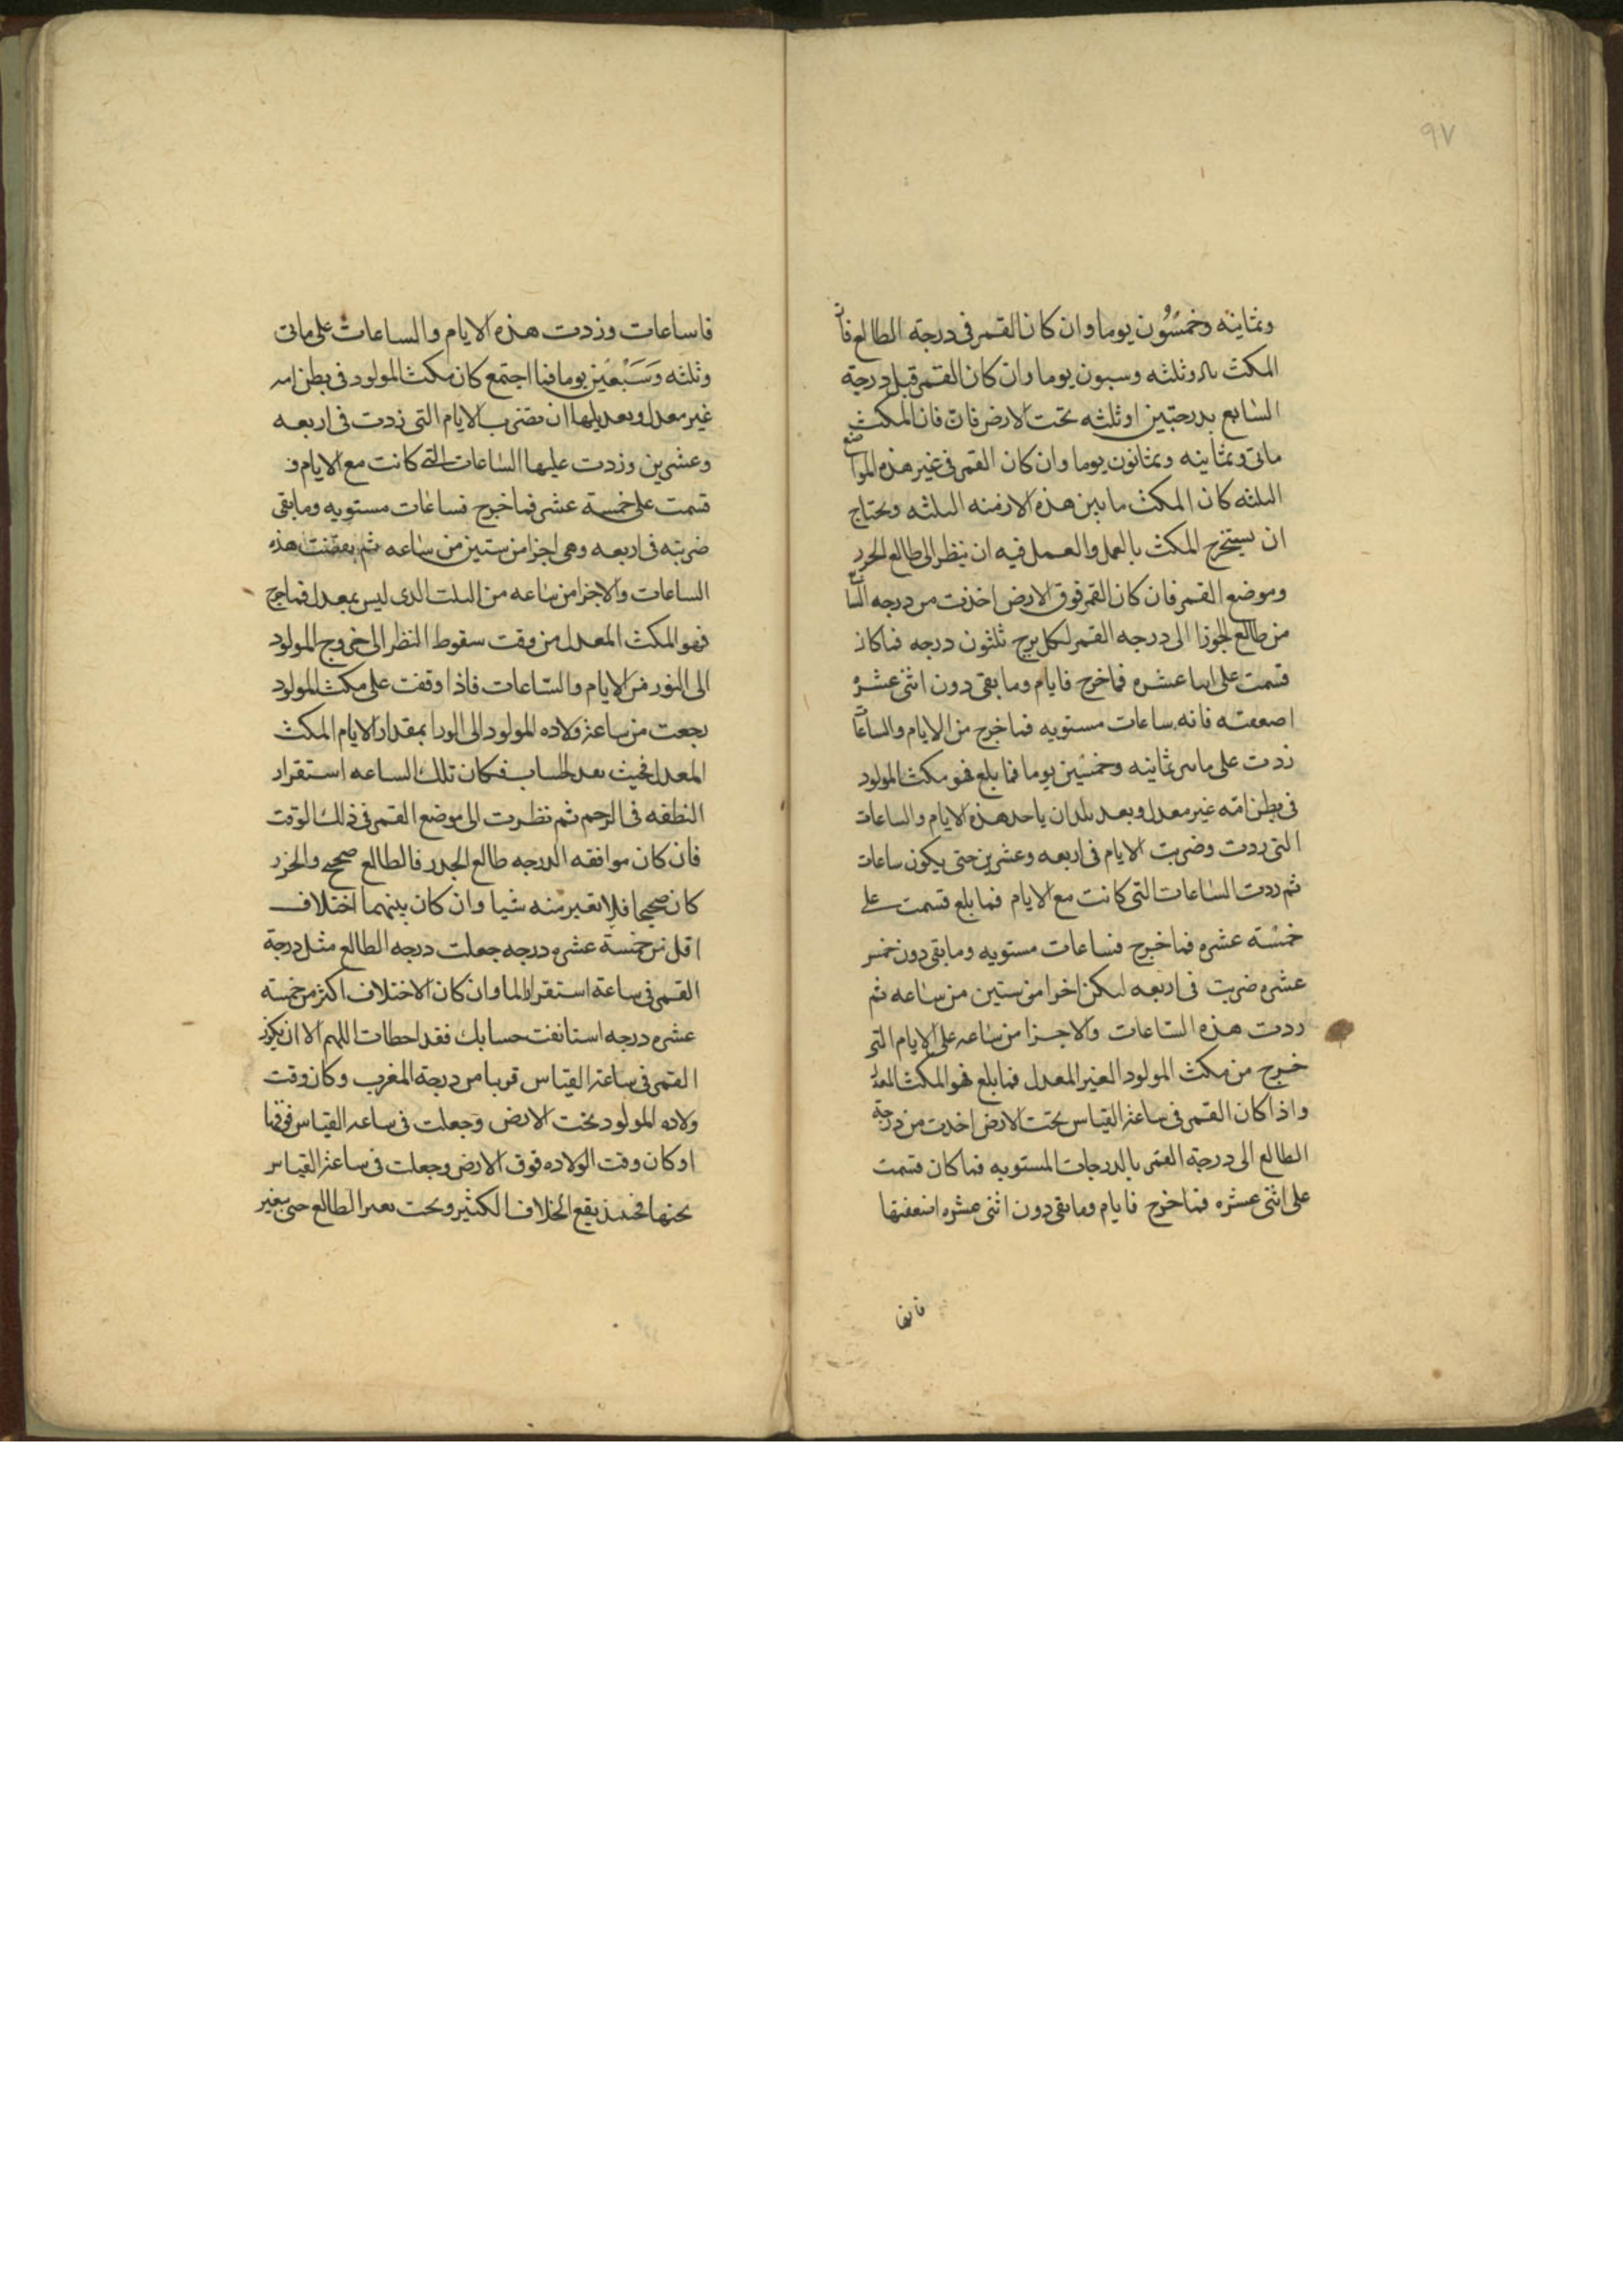 ٩٧
وثمانيه وخمسون يوما وان كان القمر فى درجة الطالع فان
المكث وثلثه وسبعون يوما وان كان القمر قبل درجة
السابع بدرجتين او ثلثه تحت الارض فان المكث
مائتى وثمانيه وثمانون يوما وان كان القمر فى غير هذه المواضع
الثلثه كان المكث ما بين هذه الازمنه الثلثه ويحتاج
ان يستخرج المكث بالعمل والعمل فيه ان ينظر الى طالع الحرر
وموضع القمر فان كان القمر فوق الارض اخذت من درجه السابع
من طالع الجوزا الى درجه القمر لكل برج ثلثون درجه فما كان
قسمت على اثنا عشره فما خرج فايام وما بقى دون اثنى عشره
اضعفته فانه ساعات مستويه فما خرج من الايام والساعات
زدت على مائتى ثمانيه وخمسين يوما فما بلغ فهو مكث المولود
فى بطن امه غير معدل وبعد ذلك ان ياخذ هذه الايام والساعات
التى زدت وضربت الايام فى اربعه وعشرين حتى يكون ساعات
ثم زدت الساعات التى كانت مع الايام فما بلغ قسمت على
خمسة عشره فما خرج فساعات مستويه وما بقى دون خمس
عشره ضربت فى اربعه ليكن اجزا من ستين من ساعه ثم
زدت هذه الساعات والاجزا من ساعه على الايام التى
خرج من مكث المولود الغير المعدل فما بلغ فهو المكث المعدل
واذا كان القمر فى ساعة القياس تحت الارض اخذت من درجة
الطالع الى درجة القمر بالدرجات المستويه فما كان قسمت
على اثنى عشره فما خرج فايام وما بقى دون اثنى عشره اضعفتها
فانها
فاساعات وزدت هذه الايام والساعات على مائتى
وثلثه وسبعين يوما فما اجتمع كان مكث المولود فى بطن امه
غير معدل وبعديلها ان تضرب الايام التى زدت فى اربعه
وعشرين وزدت عليها الساعات التى كانت مع الايام و
قسمت على خمسة عشر فما خرج فساعات مستويه وما بقى
ضربته فى اربعه وهى اجزا من ستين من ساعه ثم نقصت هذه
الساعات والاجزا من ساعه من المكث الذى ليس بمعدل فما خرج
فهو المكث المعدل من وقت سقوط النظر الى خروج المولود
الى النور من الايام والساعات فاذا وقفت على مكث المولود
رجعت من ساعة ولاده المولود الى الورا بمقدار الايام المكث
المعدل فحيث نفد الحساب فكان تلك الساعه استقرار
النطفه فى الرحم ثم نظرت الى موضع القمر فى ذلك الوقت
فان كان موافقه الدرجه طالع الجدر فالطالع صحيح والحزر
كان صحيحا فلا تغير منه شيا وان كان بينهما اختلاف
اقل من خمسة عشره درجه جعلت درجه الطالع مثل درجة
القمر فى ساعة استقرار الما وان كان الاختلاف اكثر من خمسة
عشره درجه استانفت حسابك فقد اخطات اللهم الا ان يكون
القمر فى ساعة القياس قريبا من درجة المغرب وكان وقت
ولاده المولود تحت الارض وجعلت فى ساعه القياس فوقها
او كان وقت الولاده فوق الارض وجعلت فى ساعة القياس
تحتها فحينئذ يقع الخلاف الكثير ويجب تغير الطالع حتى يتغير